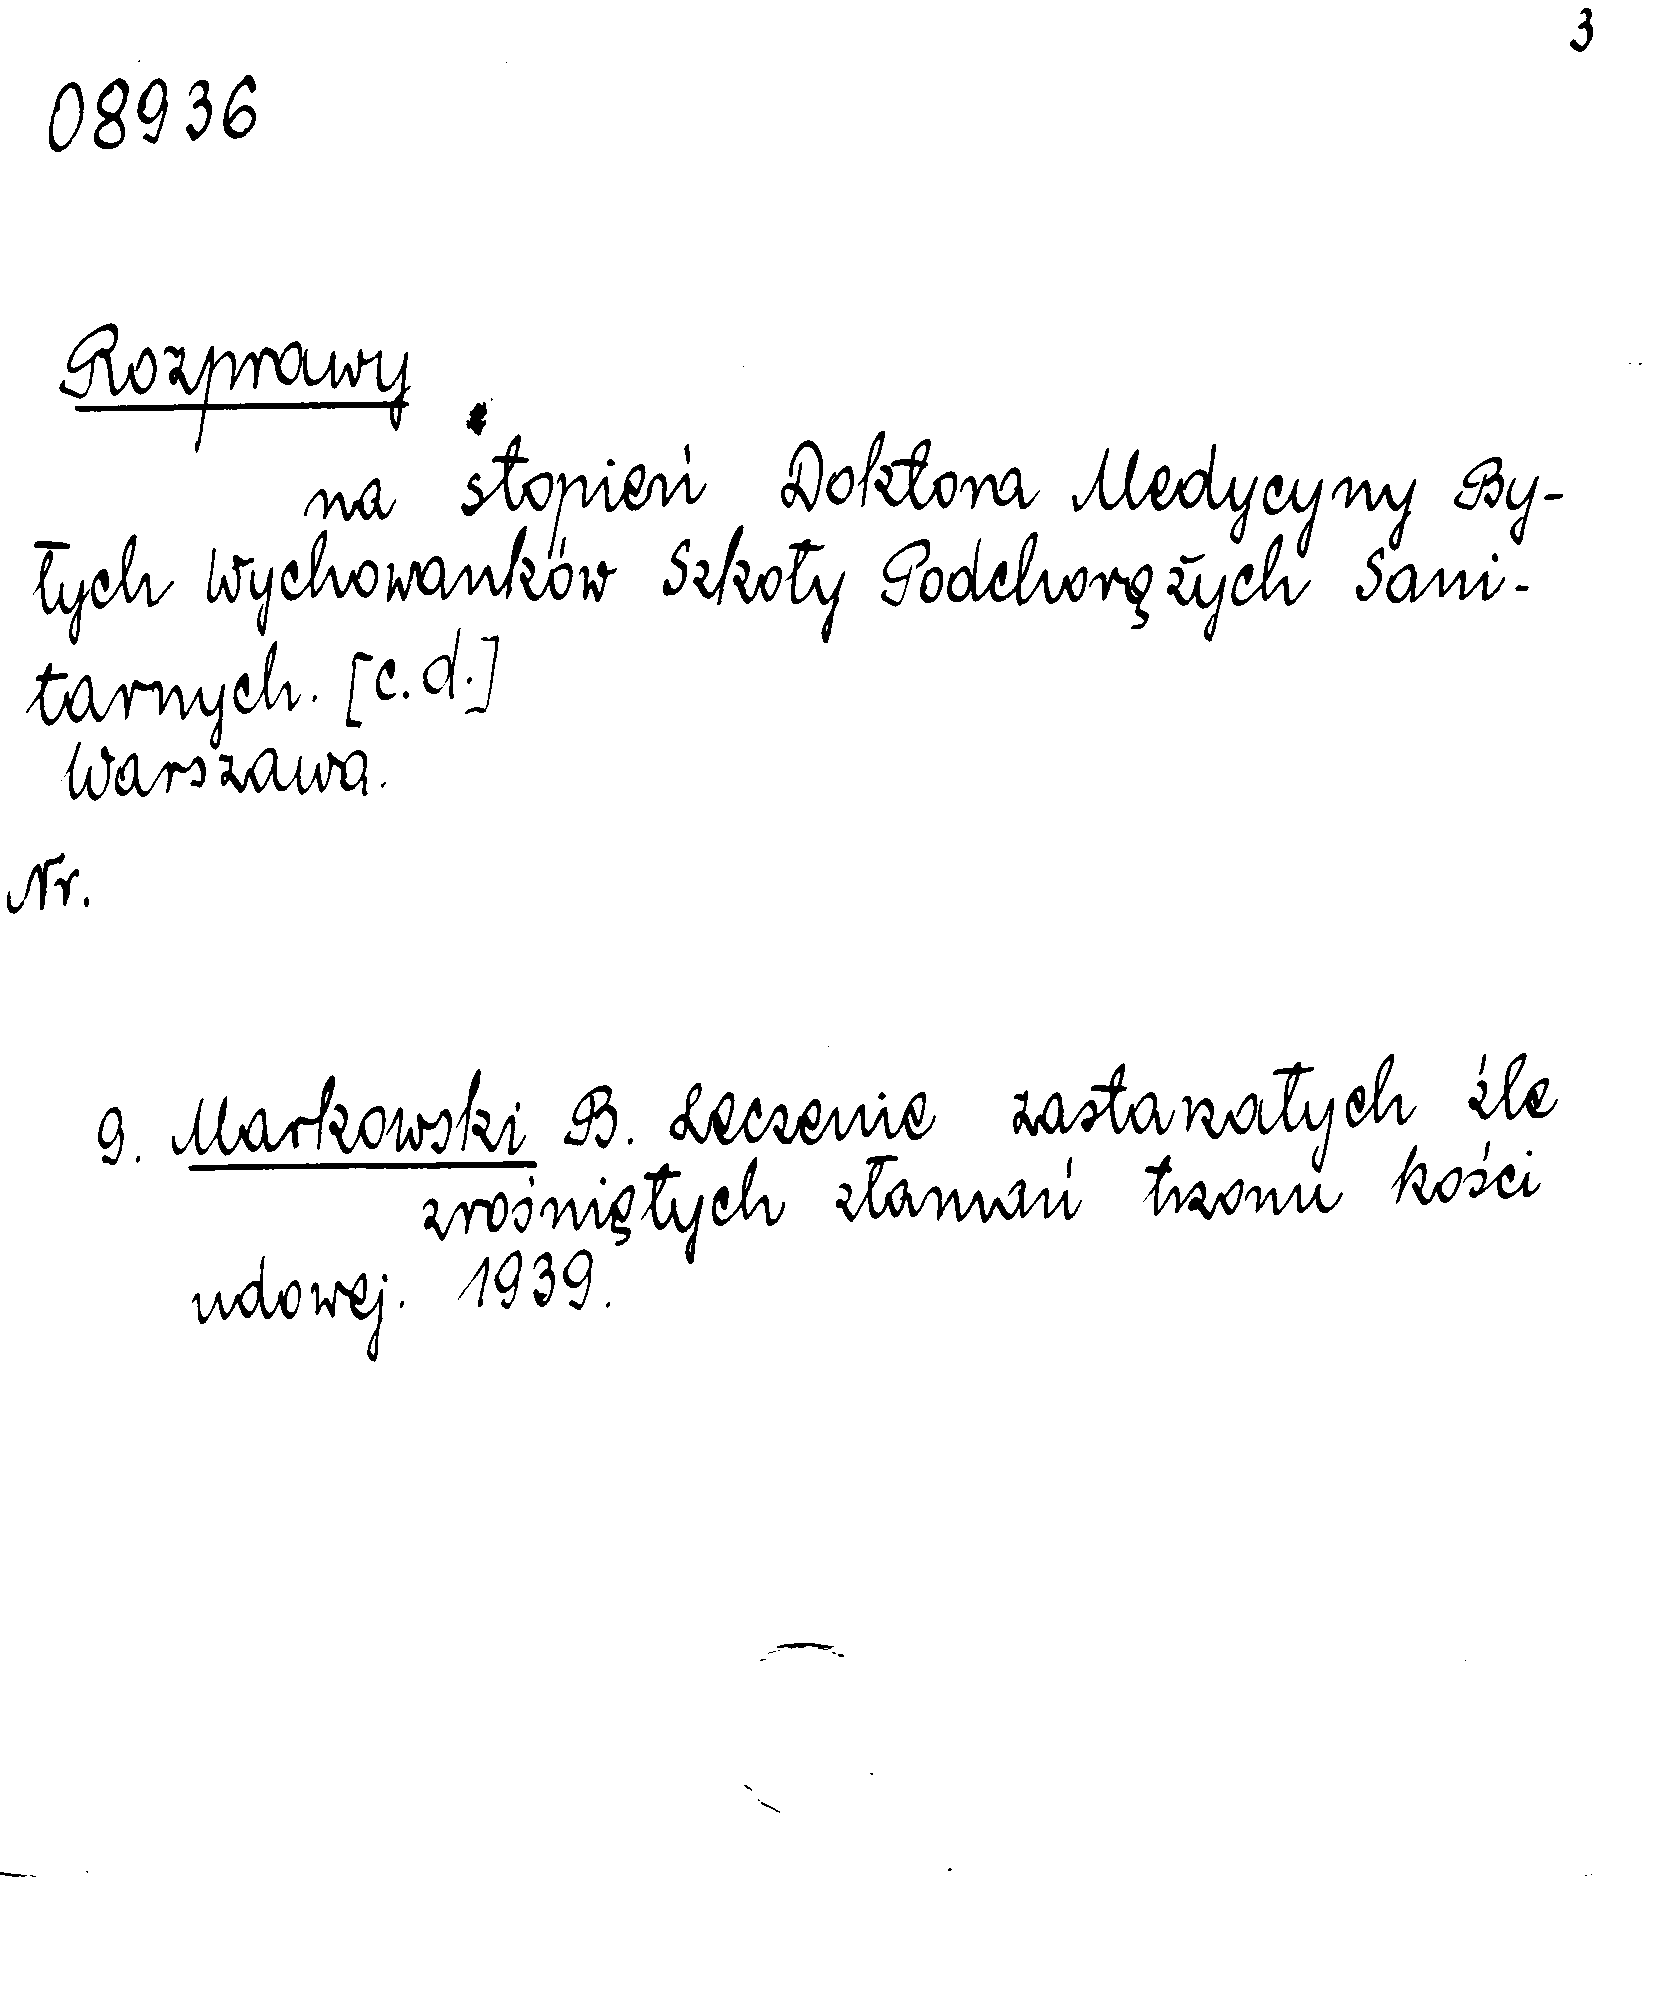 3
08936
Rozprawy
na stopień Doktora Medycyny By-
łych Wychowanków Szkoły Podchorążych Sani-
tarnych. [c.d.]
Warszawa.
Nr.
9. Markowski B. Leczenie zastarzałych źle
zrośniętych złamań trzonu kości
udowej. 1939.